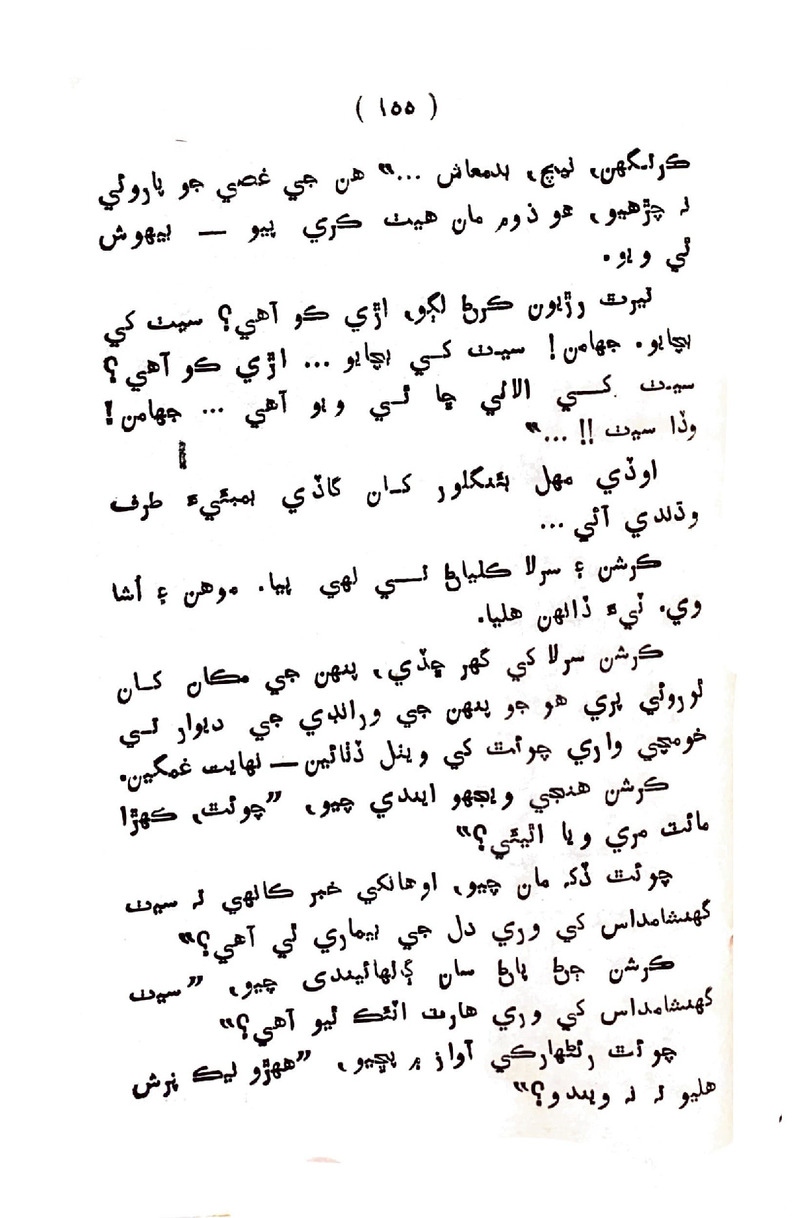 ( ١٥٥ )
ڪرانگهن، نيچ، بدمعاش ...“ هن جي غصي جو پارو ئي
نہ چڙهيو، هو ڌوم مان هيٺ ڪري پيو — بيهوش
ٿي ويو.
تيرٿ رڙيون ڪرڻ لڳو، اڙي ڪو آهي؟ سيٺ کي
بچايو. جهامن! سيٺ کي بچايو ... اڙي ڪو آهي؟
سيٺ کي الائي ڇا ٿي ويو آهي ... جهامن!
وڏا سيٺ !! ...“
اوڏي مهل بئنگلور کان گاڏي بمبئيءَ طرف
وڌندي آئي ...
ڪرشن ۽ سرلا ڪلياڻ تي لهي پيا. موهن ۽ اُشا
وي. ٽيءَ ڏانهن هليا.
ڪرشن سرلا کي گهر ڇڏي، پنهن جي مڪان کان
ٿورو ئي پري هو جو پنهن جي ورانڊي جي ديوار تي
خومچي واري چوئٿ کي ويٺل ڏٺائين — نهايت غمگين.
ڪرشن هنجي ويجهو ايندي چيو، ”چوئٿ، ڪهڙا
مائٽ مري ويا اٿيئي؟“
چوئٿ ڏک مان چيو، اوهانکي خبر ڪانهي تہ سيٺ
گهنشامداس کي وري دل جي بيماري ٿي آهي؟“
ڪرشن ڄڻ پاڻ سان ڳالهائيندي چيو، ”سيٺ
گهنشامداس کي وري هارٽ اٽئڪ ٿيو آهي؟“
چوئٿ رئڻهارڪي آواز ۾ پڇيو، ”ههڙو نيڪ پرش
هليو تہ نہ ويندو؟“